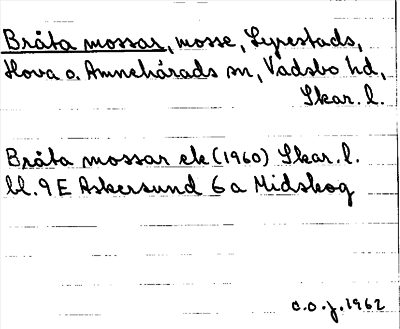 Bråta mossar, mosse, Lyrestads,
Hova o. Amnehärads sn, Vadsbo hd,
Skar. l.
Bråta mossar ek (1960) Skar. l.
bl. 9 E Askersund 6 a Midskog
o.o.j. 1962